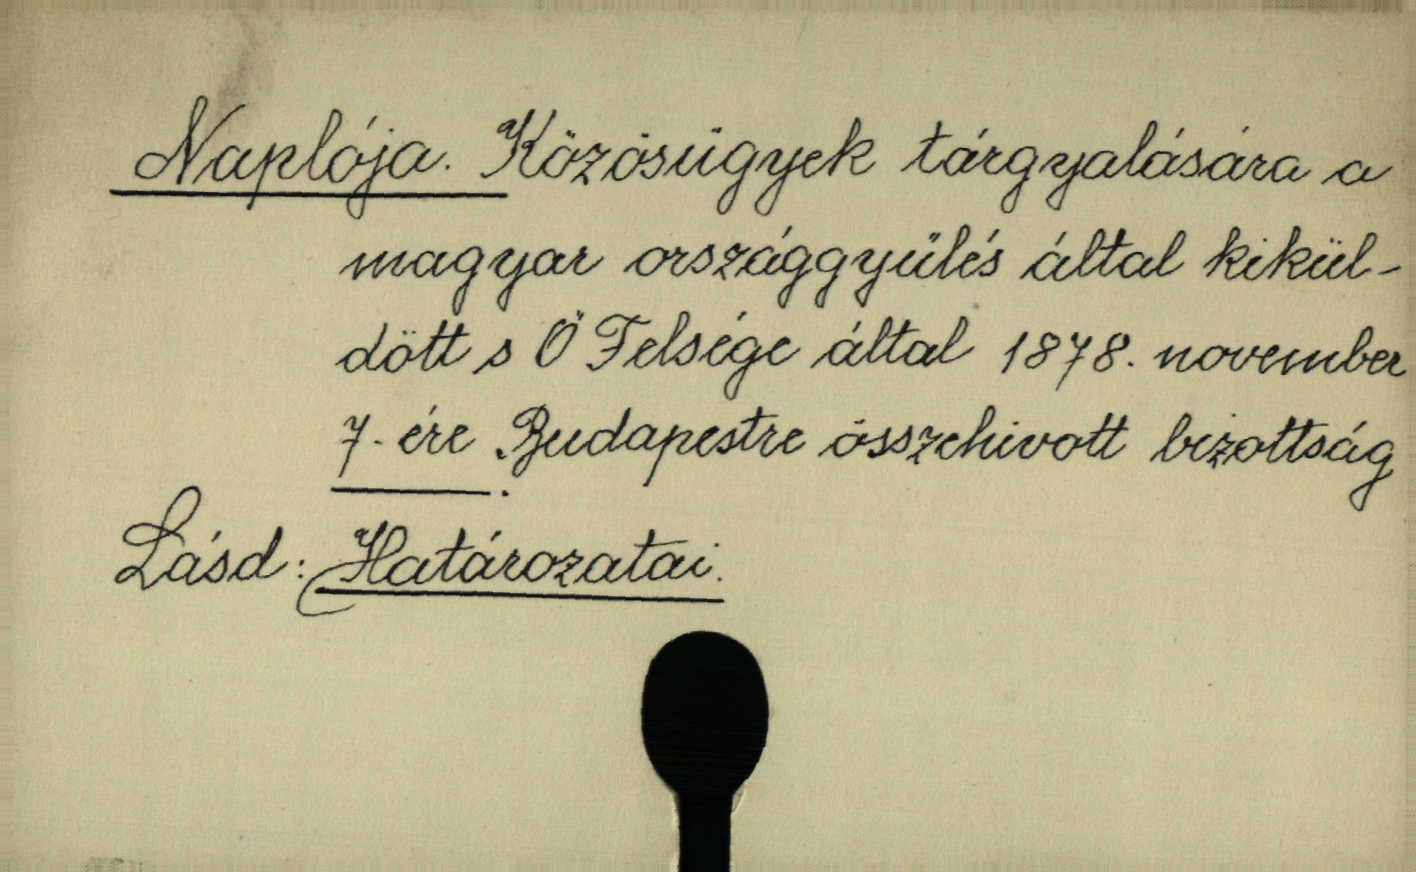 Naplója. Közösügyek tárgyalására a
magyar országgyűlés által kikül-
dött s Ő Felsége által 1878. november
7.-ére Budapestre összehivott bizottság
Lásd: Határozatai.